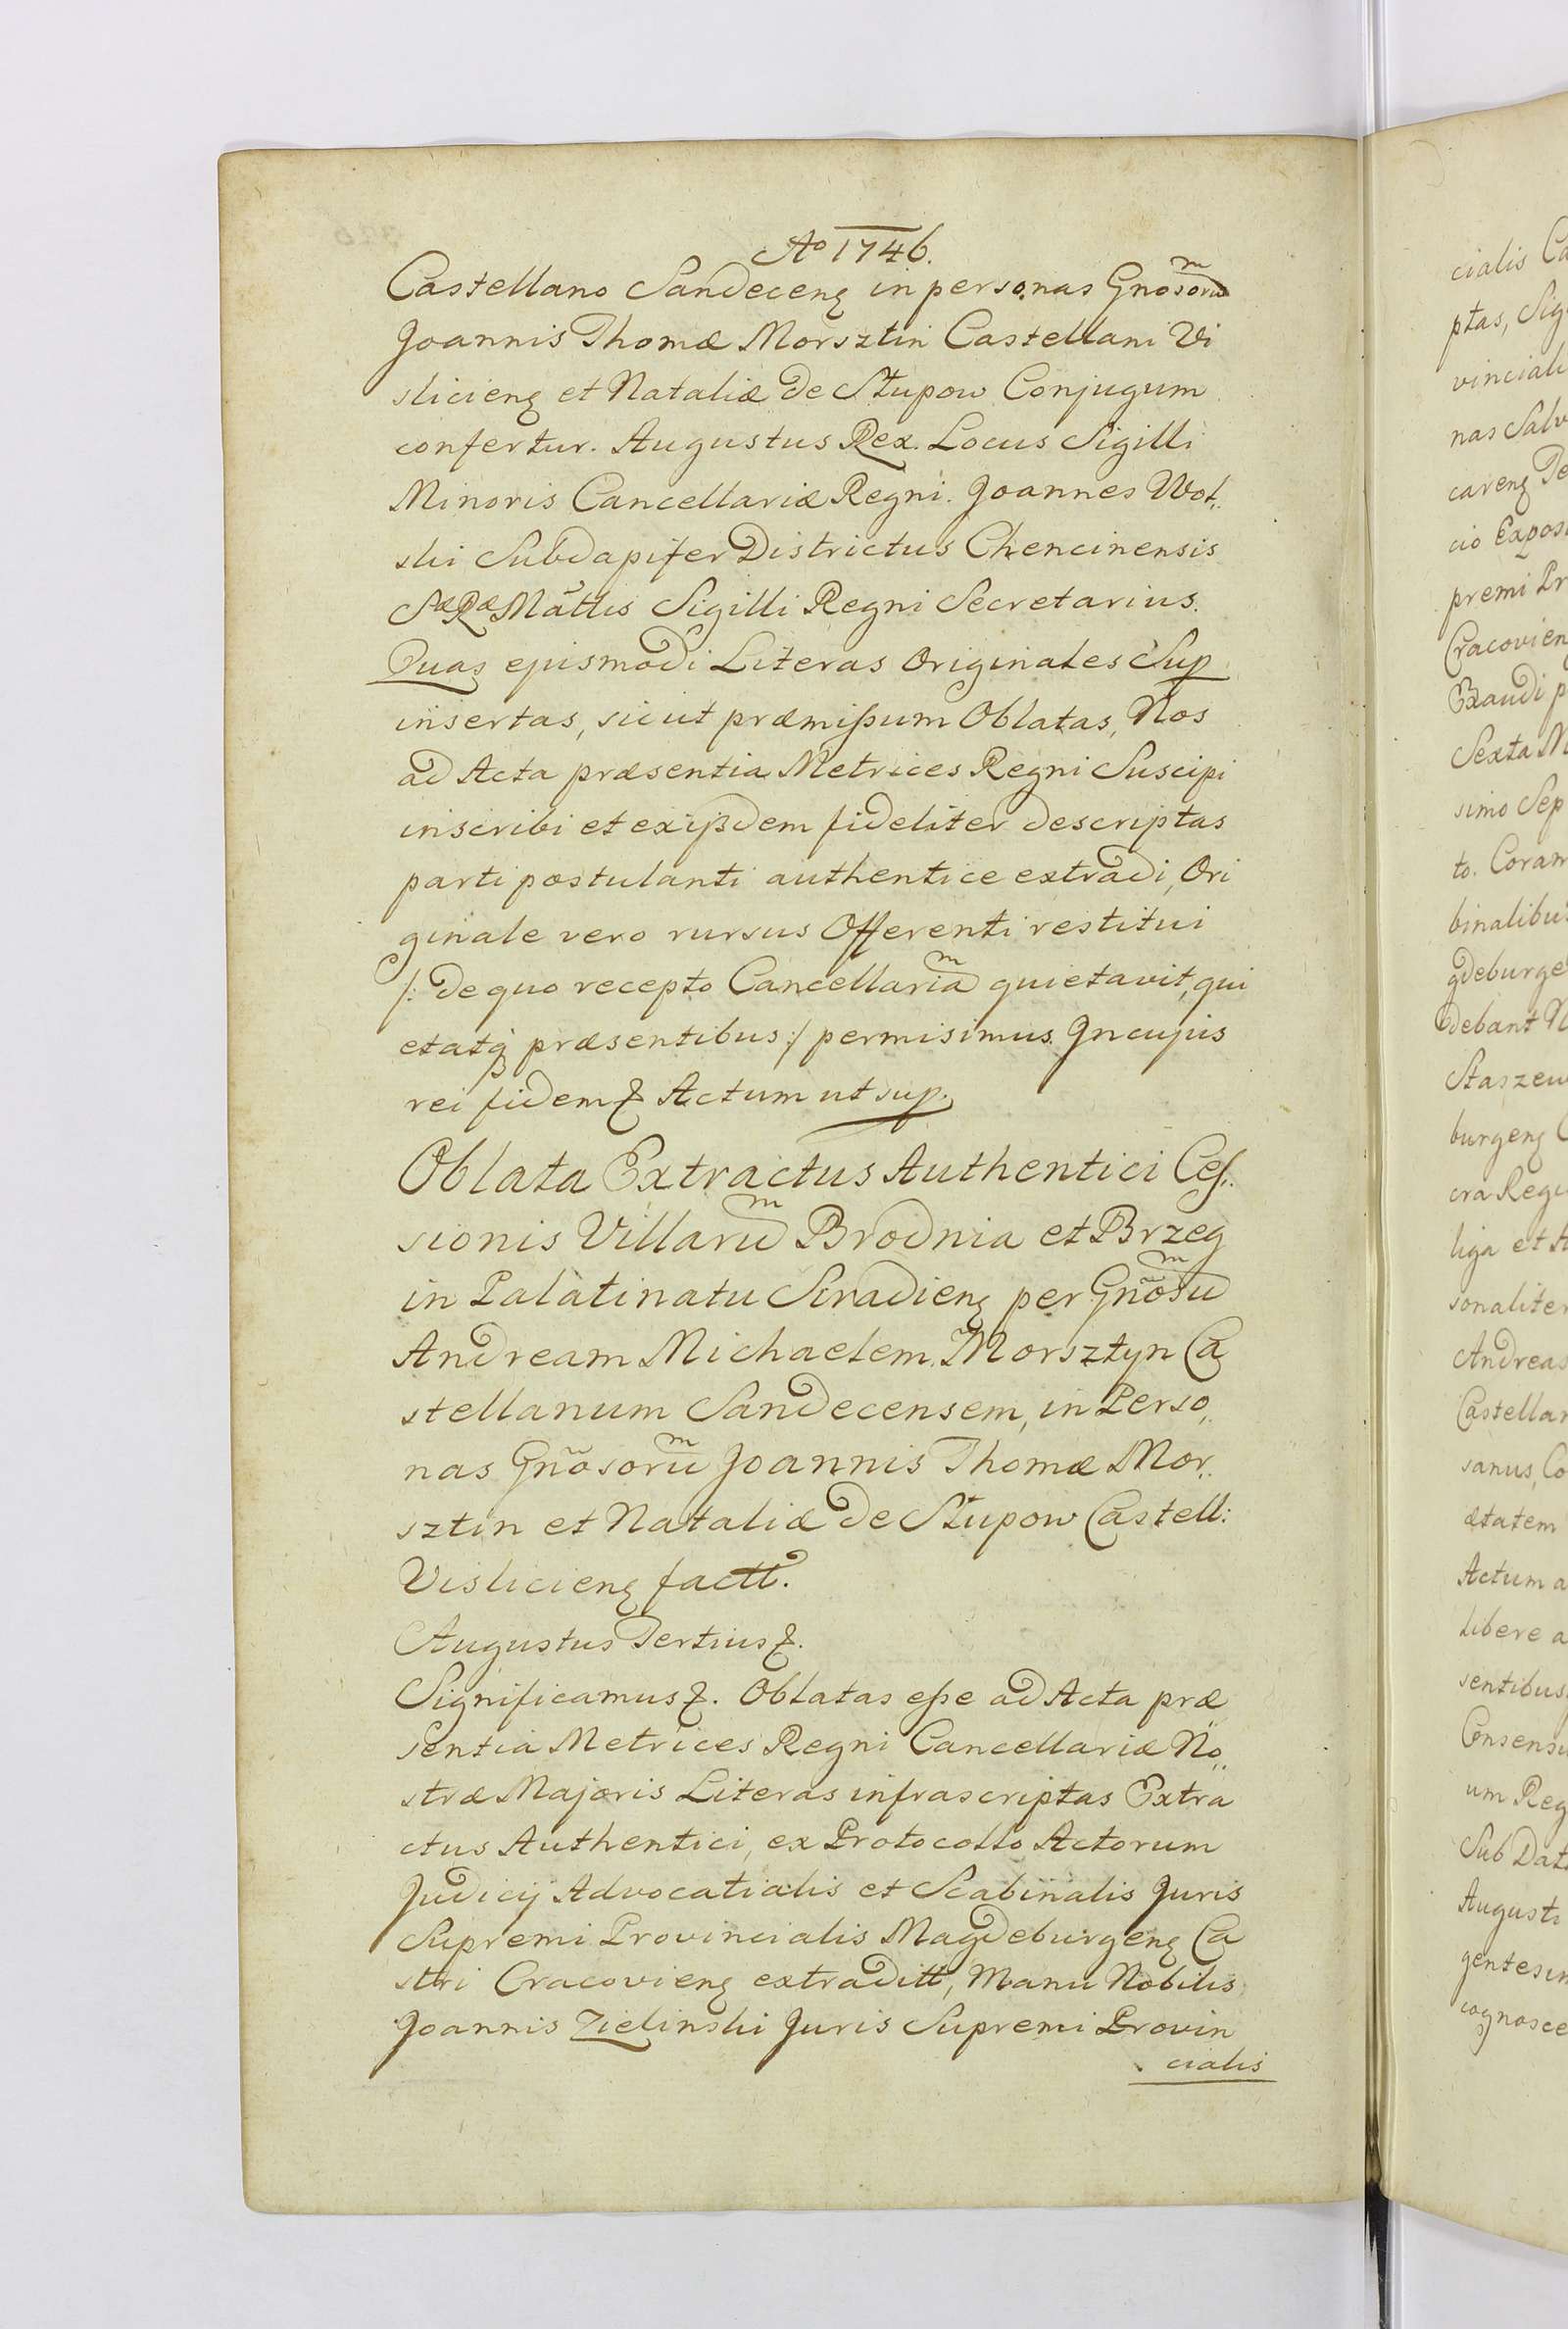 Ao 1746.
Castellano Sandeceng in personas Gnosorum
Joannis Thomæ Morsztin Castellani Vi
slicieng et Nataliæ de Słupow Conjugum
confertur. Augustus Rex. Locus Sigilli
Minoris Cancellariæ Regni. Joannes Wol„
ski Subdapifer Districtus Chencinensis
SæRæ Mattis Sigilli Regni Secretarius.
Quas ejusmodi Literas Originales Sup
insertas, sicut præmissum Oblatas, Nos
ad Acta præsentia Metrices Regni Suscipi
inscribi et ex ijsdem fideliter descriptas
parti postulanti authentice extradi, Ori
ginale vero rursus Offerenti restitui
/: de quo recepto Cancellariam quietavit, qui
etatq præsentibus :/ permisimus. In cujus
rei fidem &. Actum ut sup.
Oblata Extractus Authentici Ces„
sionis Villarum Brodnia et Brzeg
in Palatinatu Siradieng per Gnosum
Andream Michaelem Morsztyn Ca
stellanum Sandecensem, in Perso„
nas Gnosorum Joannis Thomæ Mor„
sztin et Nataliæ de Słupow Castell:
Vislicieng factt.
Augustus Tertius &.
Significamus &. Oblatas esse ad Acta præ
sentia Metrices Regni Cancellariæ No„
stræ Majoris Literas infrascriptas Extra
ctus Authentici, ex Protocollo Actorum
Judicij Advocatialis et Scabinalis Juris
Supremi Provincialis Magdeburgeng Ca
stri Cracovieng extraditt, Manu Nobilis
Joannis Zielinski Juris Supremi Provin
cialis
cialis Ca
ptas, Sig
vinciali
nas Salv
careng Te
cio Expos
premi Pr
Cracovien
Exaudi p
Sexta M
simo Sep
to. Coram
binalibus
gdeburge
debant N
Staszew
burgeng C
cra Regi
liga et A
sonaliter
Andreas
Castellan
sanus, Co
ætatem
Actum a
libere a
sentibus
Consensu
um Reg
Sub Dat
Augusti
gentesim
cognosce